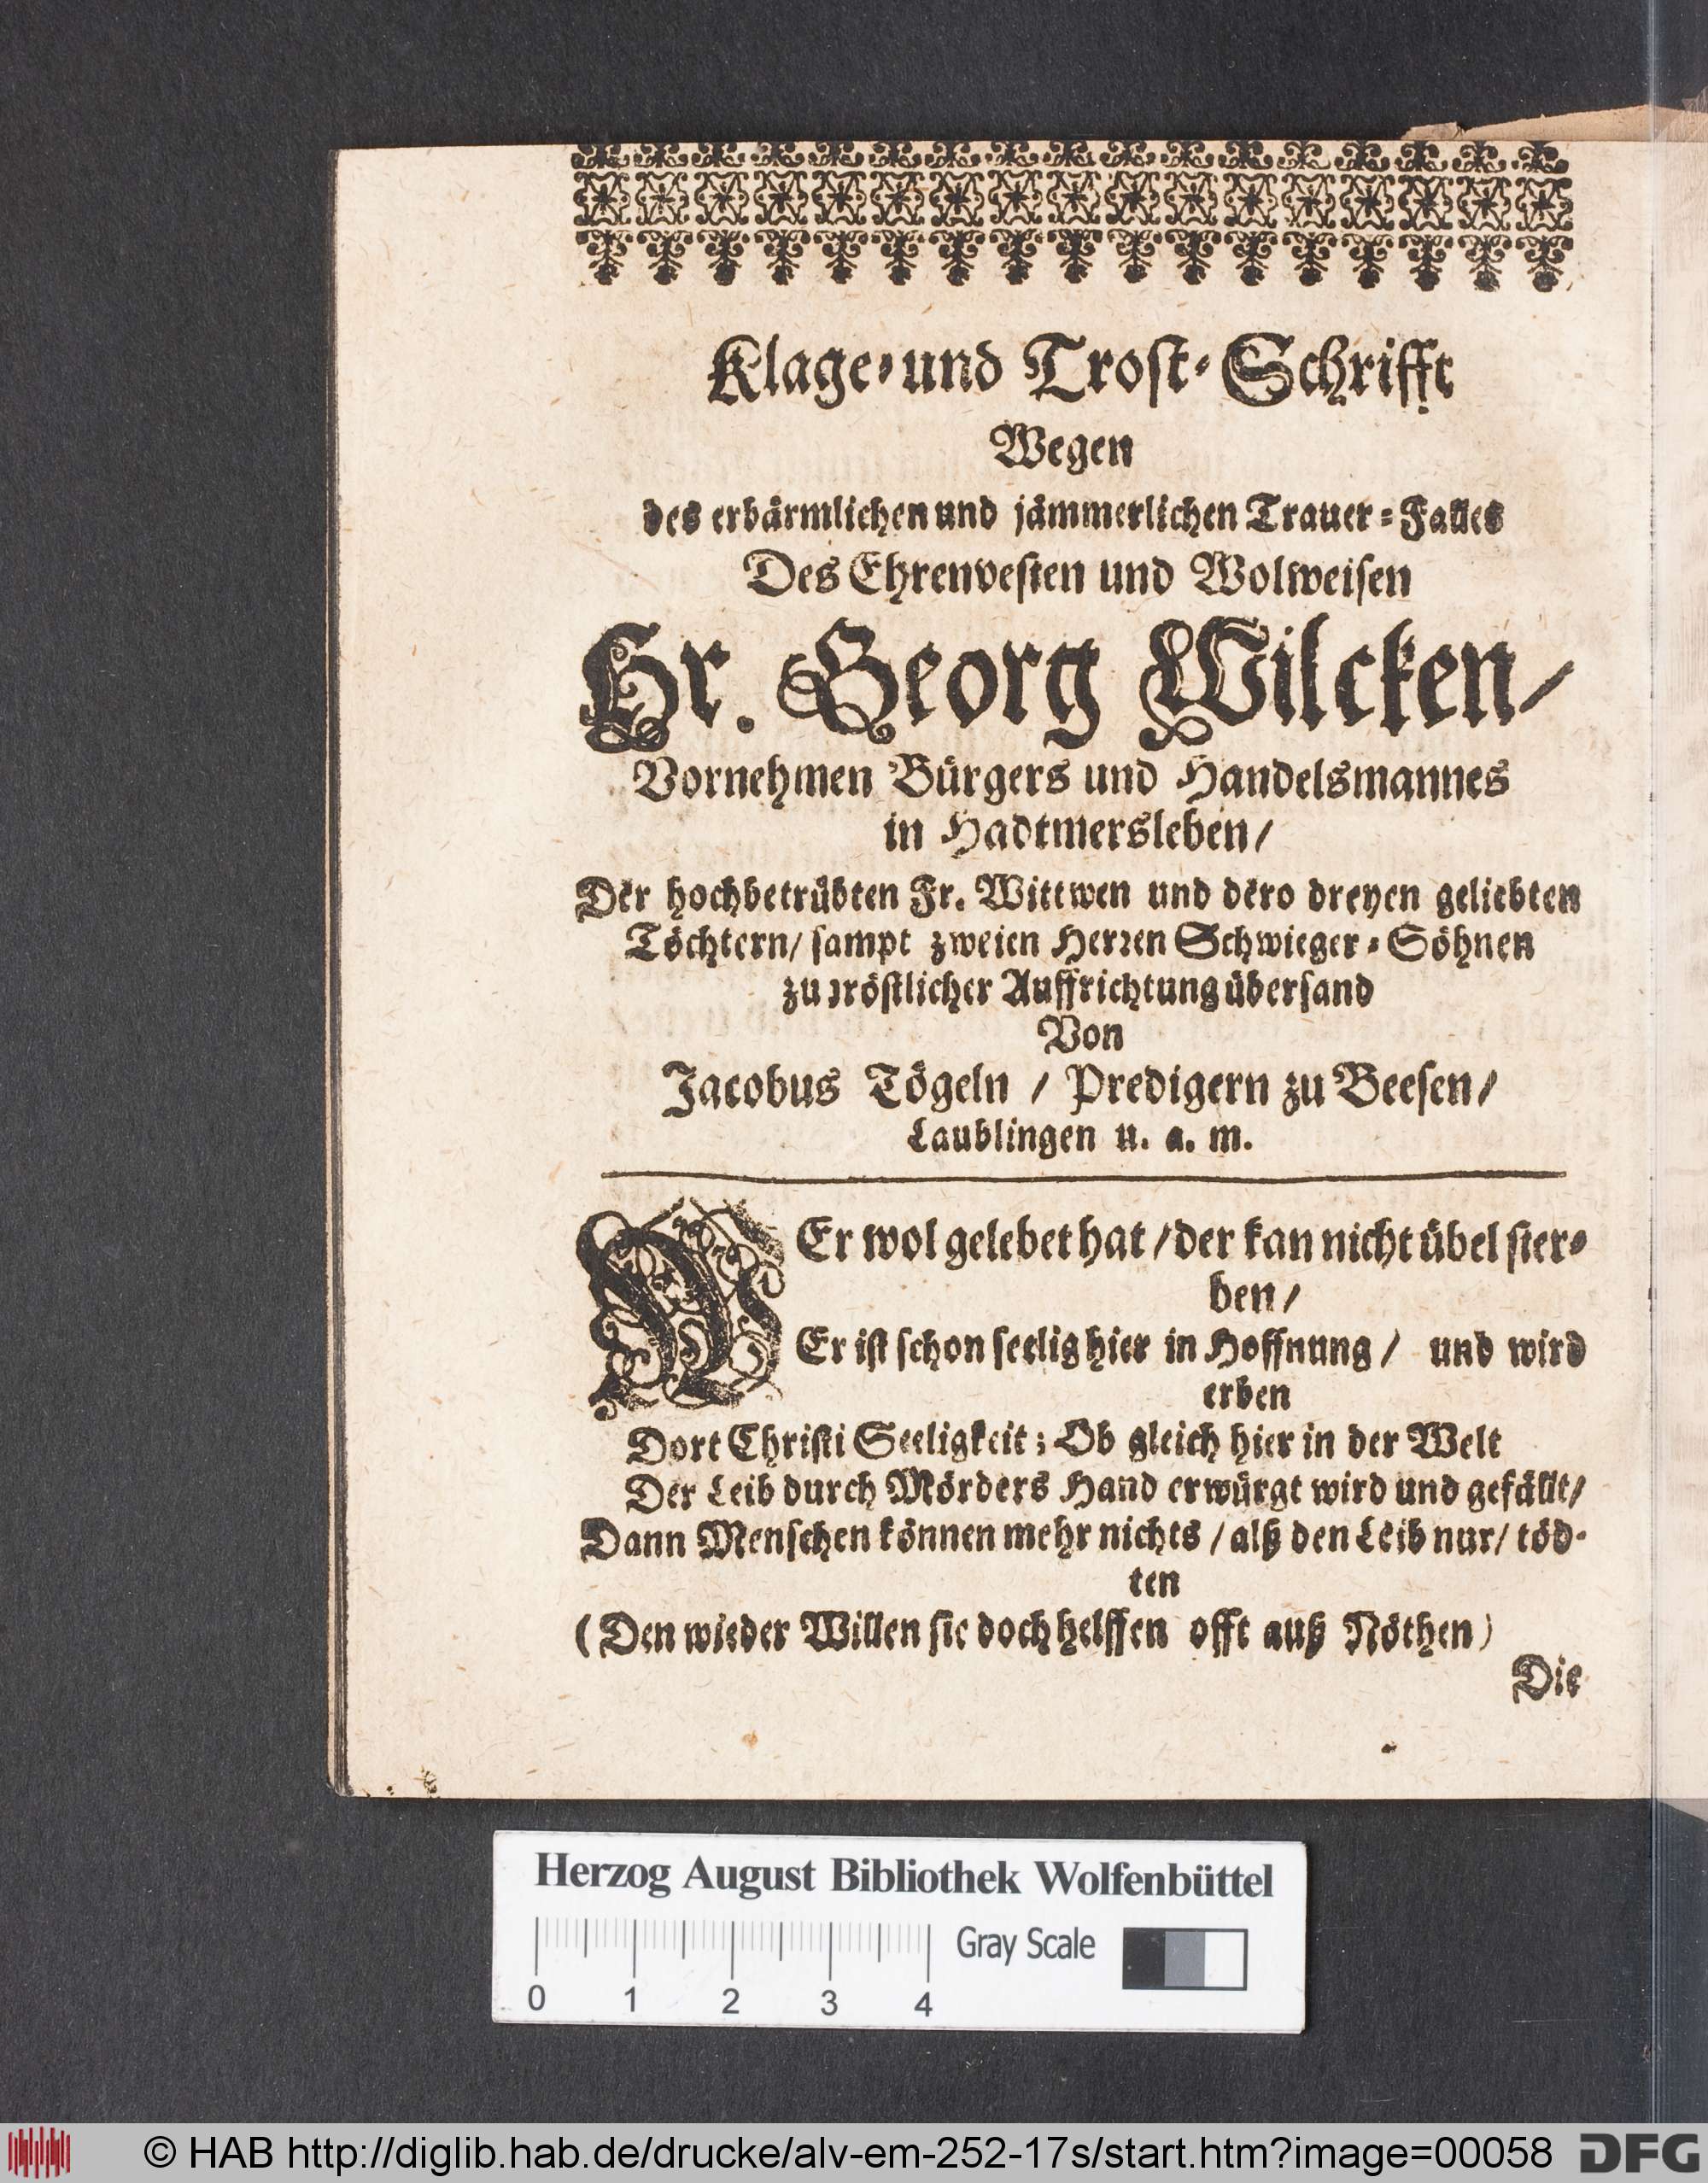 Klage-und Trost-Schrifft
Wegen
des erbärmlichen und jämmerlichen Trauer-Falles
Des Ehrenvesten und Wolweisen
Hr. Georg Wilcken/
Vornehmen Bürgers und Handelsmannes
in Hadtmersleben/
Der hochbetrübten Fr. Wittwen und dero dreyen geliebten
Töchtern/ sampt zweien Herren Schwieger-Söhnen
zu tröstlicher Auffrichtung übersand
Von
Jacobus Tögeln / Predigern zu Beesen/
Laublingen u. a. m.
WEr wol gelebet hat / der kan nicht übel ster-
ben /
Er ist schon seelig hier in Hoffnung / und wird
erben
Dort Christi Seeligkeit; Ob gleich hier in der Welt
Der Leib durch Mörders Hand erwürgt wird und gefällt/
Dann Menschen können mehr nichts / alß den Leib nur/ töd-
ten
(Den wieder Willen sie doch helffen offt auß Nöthen)
Die
Herzog August Bibliothek Wolfenbüttel
0 1 2 3 4 Gray Scale
© HAB http://diglib.hab.de/drucke/alv-em-252-17s/start.htm?image=00058 DFG